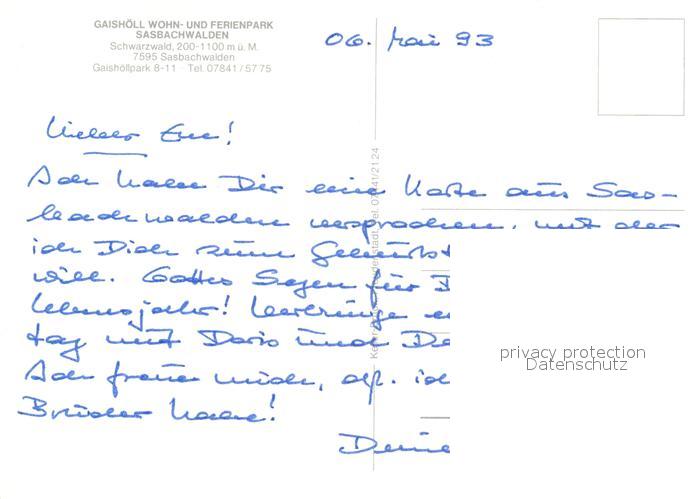 GAISHÖLL WOHN- UND FERIENPARK
SASBACHWALDEN
Schwarzwald, 200-1100 m ü. M.
7595 Sasbachwalden
Gaishöllpark 8-11 · Tel. 07841/5775
06. Mai 93
Ich habe Dir eine Karte aus Sas-
bachwalden versprochen, mit der
ich Dich zum Geburtst
will. Gottes Segen für D
Lebensjahr! Verbringe e
tag mit Doris und De
Ich freue mich, daß ich
Bruder habe!
Deine
privacy protection
Datenschutz